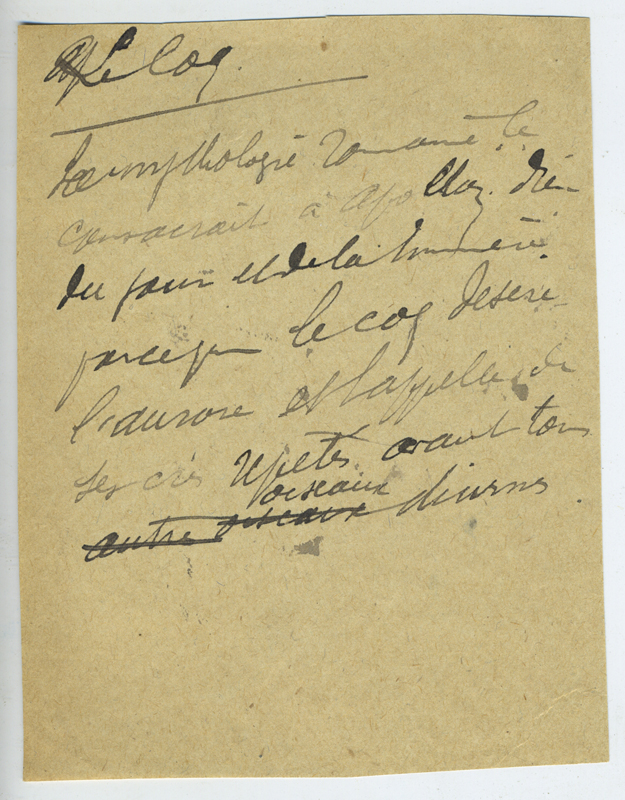 Le Coq
La mythologie romaine le
consacrait à Apollon, dieu
du jour et de la lumière
parceque le coq desire
l'aurore et l'appelle de
ses cris répétés avant tous
oiseaux
autre oiseaux diurnes.